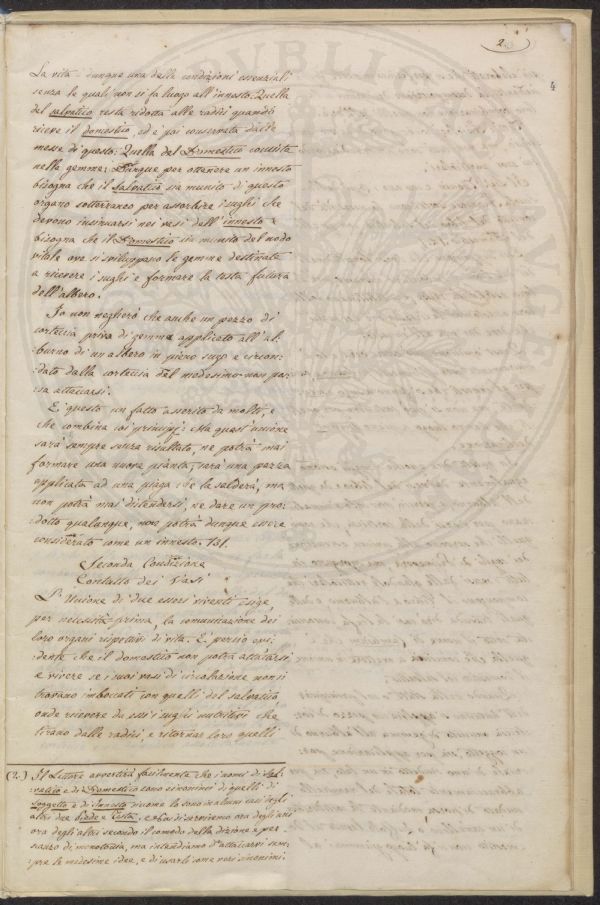 2.
4
La vita dunque una delle condizioni essenziali
senza le quali non si fa luogo all'innesto. Quella
del salvatico resta ridotta alle radici quando
riceve il domestico, ed è poi conservata dalle
messe di questo. Quella del Domestico consista
nelle gemme: Dunque per ottenere un innesto
bisogna che il Salvatico sia munito di questo
organo sotterraneo per assorbire i sughi che
devono insinuarsi nei vasi dell'innesto e
bisogna che il Domestico sia munito del nodo
vitale ove si sviluppano le gemme destinate
a ricevere i sughi e formare la testa futura
dell'albero.
Io non negherò che anche un pezzo di
corteccia priva di gemma applicato all'al-
burno di un albero in pieno sugo e circon-
dato dalla corteccia del medesimo non pos-
sa attaccarsi.
E' questo un fatto asserito da molti, e
che combina coi principj: Ma quest'unione
sarà sempre senza risultato, ne potrà mai
formare una nuova pianta, sarà una pezza
applicata ad una piaga che la salderà, ma
non potrà mai distendersi, ne dare un pro-
dotto qualunque, non potrà dunque essere
considerato come un innesto.
Seconda Condizione
Contatto dei Vasi
L'Unione di due esseri viventi esige,
per necessità prima, la comunicazione dei
loro organi rispettivi di vita. E' perciò evi-
dente che il domestico non potrà attaccarsi
e vivere se i suoi vasi di circolazione non si
trovano imboccati con quelli del salvatico
onde ricevere da essi i sughi nutritivi che
tirano dalle radici, e ritornar loro quelli
(2.) Il Lettore avvertirà facilmente che i nomi di Sal-
vatico e di Domestico sono sinonimi di quelli di
Soggetto e di Innesto siccome lo sono in alcuni casi degli
altri due Piede e Testa. e noi ci serviremo ora degli uni
ora degli altri secondo il comodo della dizione e per
scanzo di monotonia, ma intendiamo d'attaccarvi sem-
pre le medesime idee, e di usarli come veri sinonimi.